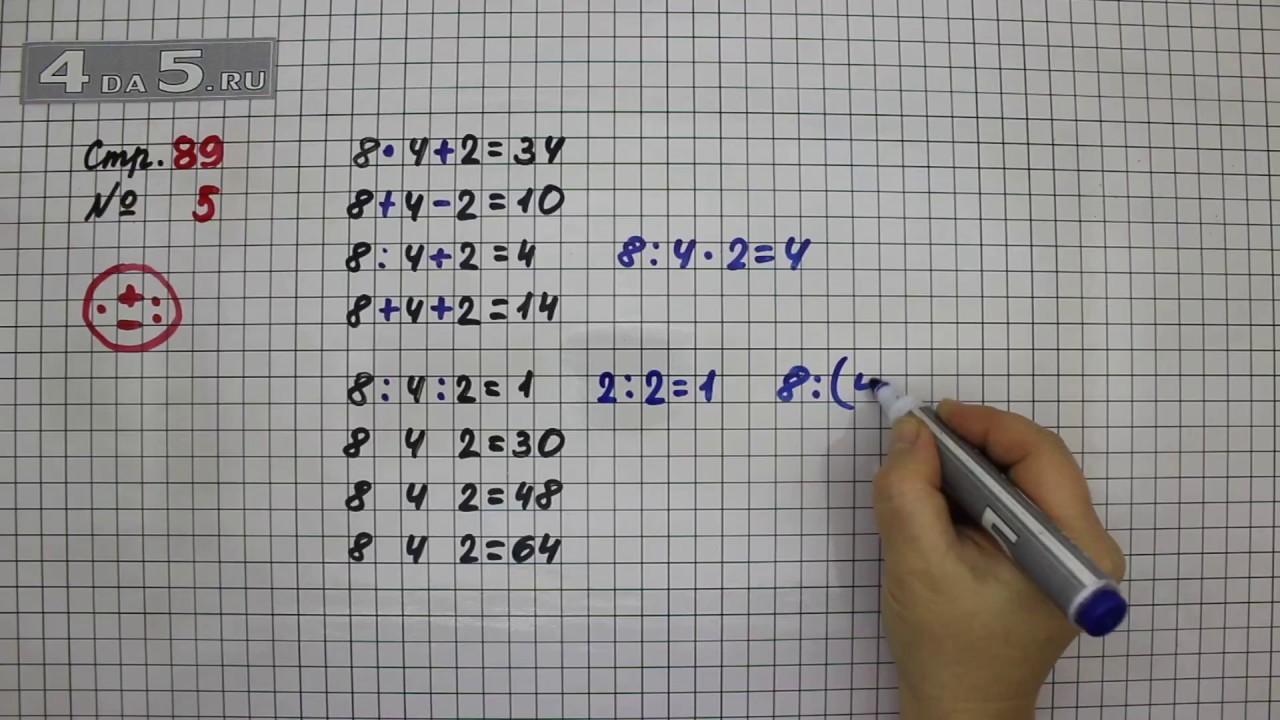 4 DA 5.RU
Стр. 89
№ 5
+ · : − :
8 · 4 + 2 = 34
8 + 4 − 2 = 10
8 : 4 + 2 = 4    8 : 4 · 2 = 4
8 + 4 + 2 = 14
8 : 4 : 2 = 1    2 : 2 = 1    8 : (4
8 4 2 = 30
8 4 2 = 48
8 4 2 = 64